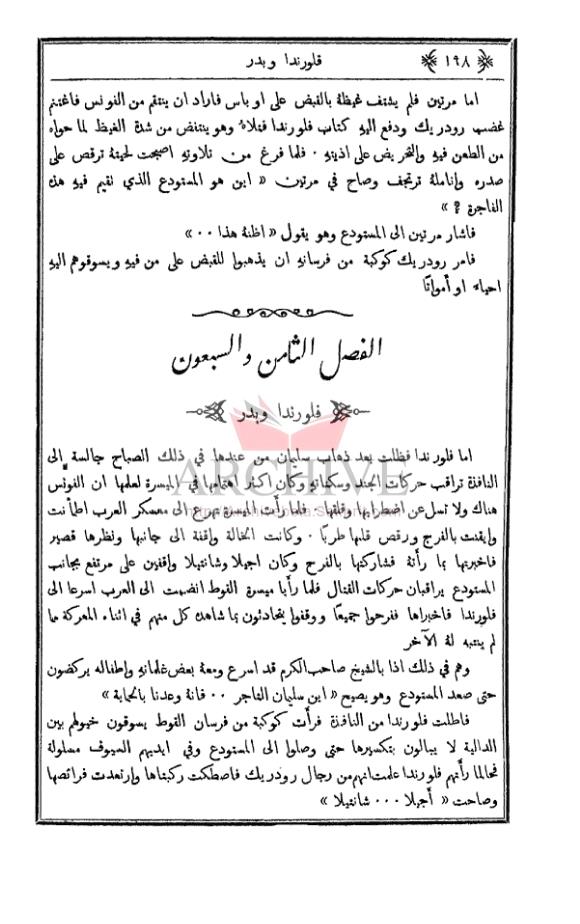 ١٩٨
فلورندا وبدر
اما مرتين فلم يشتف غيظهُ بالقبض على اوباس فاراد ان ينتقم من الفونس فاغتنم
غضب رودريك ودفع اليهِ كتاب فلورندا فتلاهُ وهو ينتفض من شدة الغيظ لما حواه
من الطعن فيهِ والتحريض على اذيتهِ ٠ فلما فرغ من تلاوتهِ اصبحت لحيتهُ ترقص على
صدره وانامله ترتجف وصاح في مرتين « اين هو المستودع الذي نقيم فيهِ هذه
الفاجرة ؟ »
فاشار مرتين الى المستودع وهو يقول « اظنهُ هذا ٠٠ »
فامر رودريك كوكبة من فرسانهِ ان يذهبوا للقبض على من فيهِ ويسوقوهم اليهِ
احياء او أمواتًا
الفصل الثامن والسبعون
فلورندا وبدر
اما فلورندا فظلت بعد ذهاب سليمان من عندها في ذلك الصباح جالسة إلى
النافذة تراقب حركات الجند وسكناتهِ وكان اكثر اهتمامها في الميسرة لعلمها ان الفونس
هناك ولا تسل عن اضطرابها وقلقها ٠ فلما رأت الميسرة تهرع الى معسكر العرب اطمأنت
وايقنت بالفرج ورقص قلبها طربًا ٠ وكانت الخالة واقفة الى جانبها ونظرها قصير
فاخبرتها بما رأتهُ فشاركتها بالفرح وكان اجيلا وشانتيلا واقفين على مرتفع بجانب
المستودع يراقبان حركات القتال فلما رأيا ميسرة القوط انضمت الى العرب اسرعا الى
فلورندا فاخبراها ففرحوا جميعًا ووقفوا يتحادثون بما شاهده كل منهم في اثناء المعركة مما
لم ينتبه لهُ الآخر
وهم في ذلك اذا بالشيخ صاحب الكرم قد اسرع ومعهُ بعض غلمانهِ واطفاله يركضون
حتى صعد المستودع وهو يصيح « اين سليمان التاجر ٠٠ فانهُ وعدنا بالحماية »
فاطلت فلورندا من النافذة فرأت كوكبة من فرسان القوط يسوقون خيولهم بين
الدالية لا يبالون بتكسيرها حتى وصلوا الى المستودع وفي ايديهم السيوف مسلولة
فحالما رأتهم فلورندا علمت انهم من رجال رودريك فاصطكت ركبتاها وارتعدت فرائصها
وصاحت « أجيلا ٠٠٠ شانتيلا »
ARCHIVE